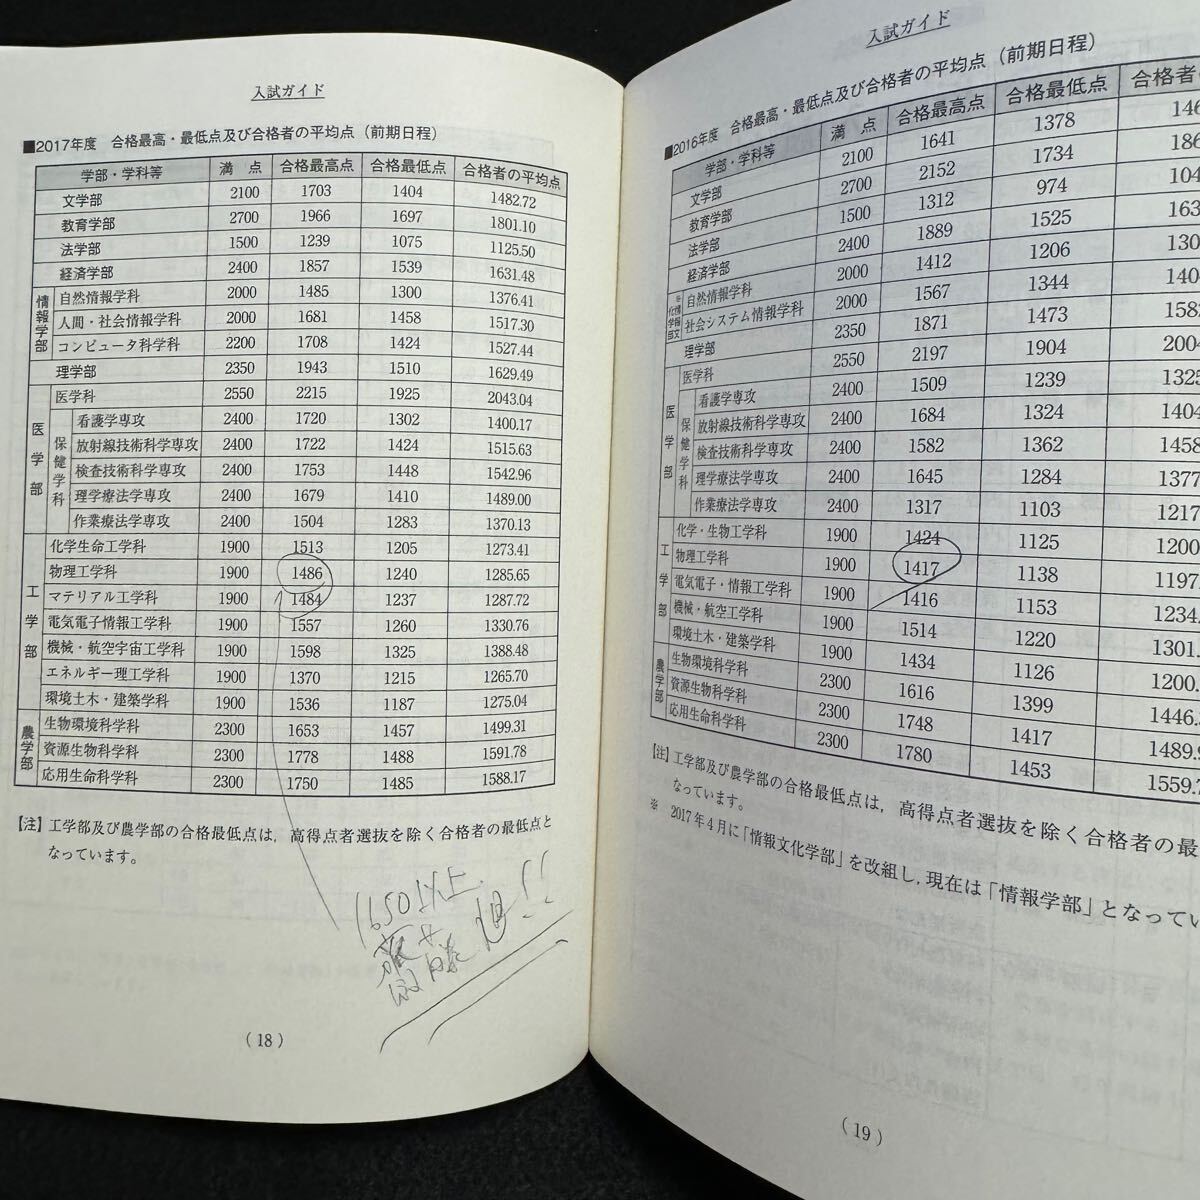 入試ガイド
■2017年度 合格最高・最低点及び合格者の平均点（前期日程）
学部・学科等 満点 合格最高点 合格最低点 合格者の平均点
文学部 2100 1703 1404 1482.72
教育学部 2700 1966 1697 1801.10
法学部 1500 1239 1075 1125.50
経済学部 2400 1857 1539 1631.48
情報学部
自然情報学科 2000 1485 1300 1376.41
人間・社会情報学科 2000 1681 1458 1517.30
コンピュータ科学科 2200 1708 1424 1527.44
理学部 2350 1943 1510 1629.49
医学部
医学科 2550 2215 1925 2043.04
保健学科
看護学専攻 2400 1720 1302 1400.17
放射線技術科学専攻 2400 1722 1424 1515.63
検査技術科学専攻 2400 1753 1448 1542.96
理学療法学専攻 2400 1679 1410 1489.00
作業療法学専攻 2400 1504 1283 1370.13
工学部
化学生命工学科 1900 1513 1205 1273.41
物理工学科 1900 1486 1240 1285.65
マテリアル工学科 1900 1484 1237 1287.72
電気電子情報工学科 1900 1557 1260 1330.76
機械・航空宇宙工学科 1900 1598 1325 1388.48
エネルギー理工学科 1900 1370 1215 1265.70
環境土木・建築学科 1900 1536 1187 1275.04
農学部
生物環境科学科 2300 1653 1457 1499.31
資源生物科学科 2300 1778 1488 1591.78
応用生命科学科 2300 1750 1485 1588.17
【注】工学部及び農学部の合格最低点は，高得点者選抜を除く合格者の最低点と
なっています。
1650以上
（18）
入試ガイド
■2016年度 合格最高・最低点及び合格者の平均点（前期日程）
学部・学科等 満点 合格最高点 合格最低点 合格者の
文学部 2100 1641 1378 146
教育学部 2700 2152 1734 186
法学部 1500 1312 974 104
経済学部 2400 1889 1525 163
※情報文化学部
自然情報学科 2000 1412 1206 130
社会システム情報学科 2000 1567 1344 140
理学部 2350 1871 1473 158
医学部
医学科 2550 2197 1904 2004
保健学科
看護学専攻 2400 1509 1239 1325
放射線技術科学専攻 2400 1684 1324 1404
検査技術科学専攻 2400 1582 1362 1458
理学療法学専攻 2400 1645 1284 1377
作業療法学専攻 2400 1317 1103 1217
工学部
化学・生物工学科 1900 1424 1125 1200
物理工学科 1900 1417 1138 1197
電気電子・情報工学科 1900 1416 1153 1234
機械・航空工学科 1900 1514 1220 1301
環境土木・建築学科 1900 1434 1126 1200
農学部
生物環境科学科 2300 1616 1399 1446
資源生物科学科 2300 1748 1417 1489
応用生命科学科 2300 1780 1453 1559.7
【注】工学部及び農学部の合格最低点は，高得点者選抜を除く合格者の最
なっています。
※ 2017年4月に「情報文化学部」を改組し，現在は「情報学部」となってい
（19）